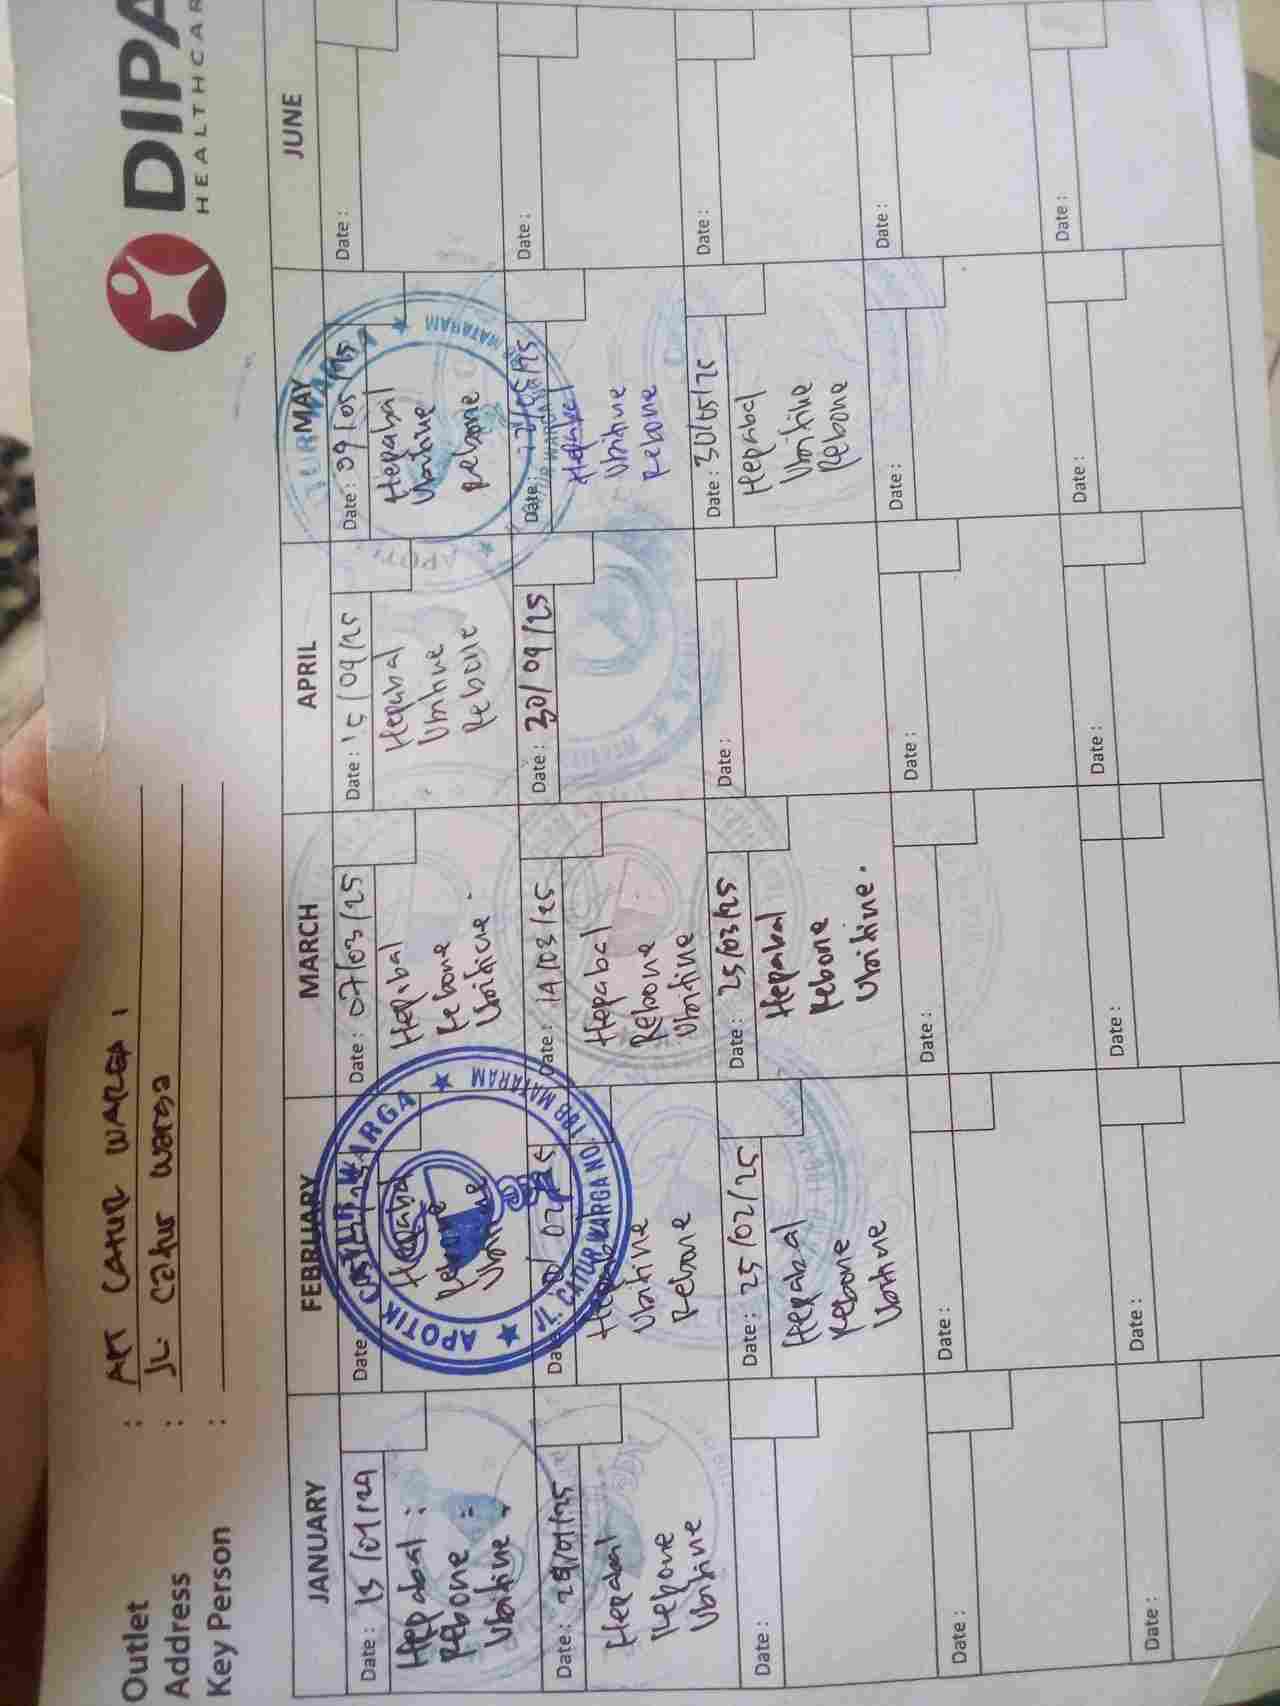 DIPA
HEALTHCAR
Outlet : APT CATUR WARGA 1
Address : JL. Catur Warga
Key Person :
JANUARY
Date : 13/01/24
Hepabal :
Rebone :
Ubitine .
Date : 29/01/25
Hepabal
Rebone
Ubitine
Date :
Date :
Date :
FEBRUARY
Date
Hepabal
Rebone
Ubitine
APOTIK CATUR WARGA
JL. CATUR WARGA NO. 10B MATARAM
Hepabal
Ubitine
Rebone
Date : 25/02/25
Hepabal
Rebone
Ubitine
Date :
Date :
MARCH
Date : 07/03/25
Hepabal
Rebone
Ubitine .
Date : 14/03/25
Hepabal
Rebone
Ubitine
Date : 25/03/25
Hepabal
Rebone
Ubitine .
Date :
Date :
APRIL
Date : 15/04/25
Hepabal
Ubitine
Rebone
Date : 30/04/25
Date :
Date :
Date :
MAY
Date : 09/05/25
Hepabal
Ubitine
Rebone
Date :
Hepabal
Ubitine
Rebone
Date : 30/05/25
Hepabal
Ubitine
Rebone
Date :
Date :
JUNE
Date :
Date :
Date :
Date :
Date :